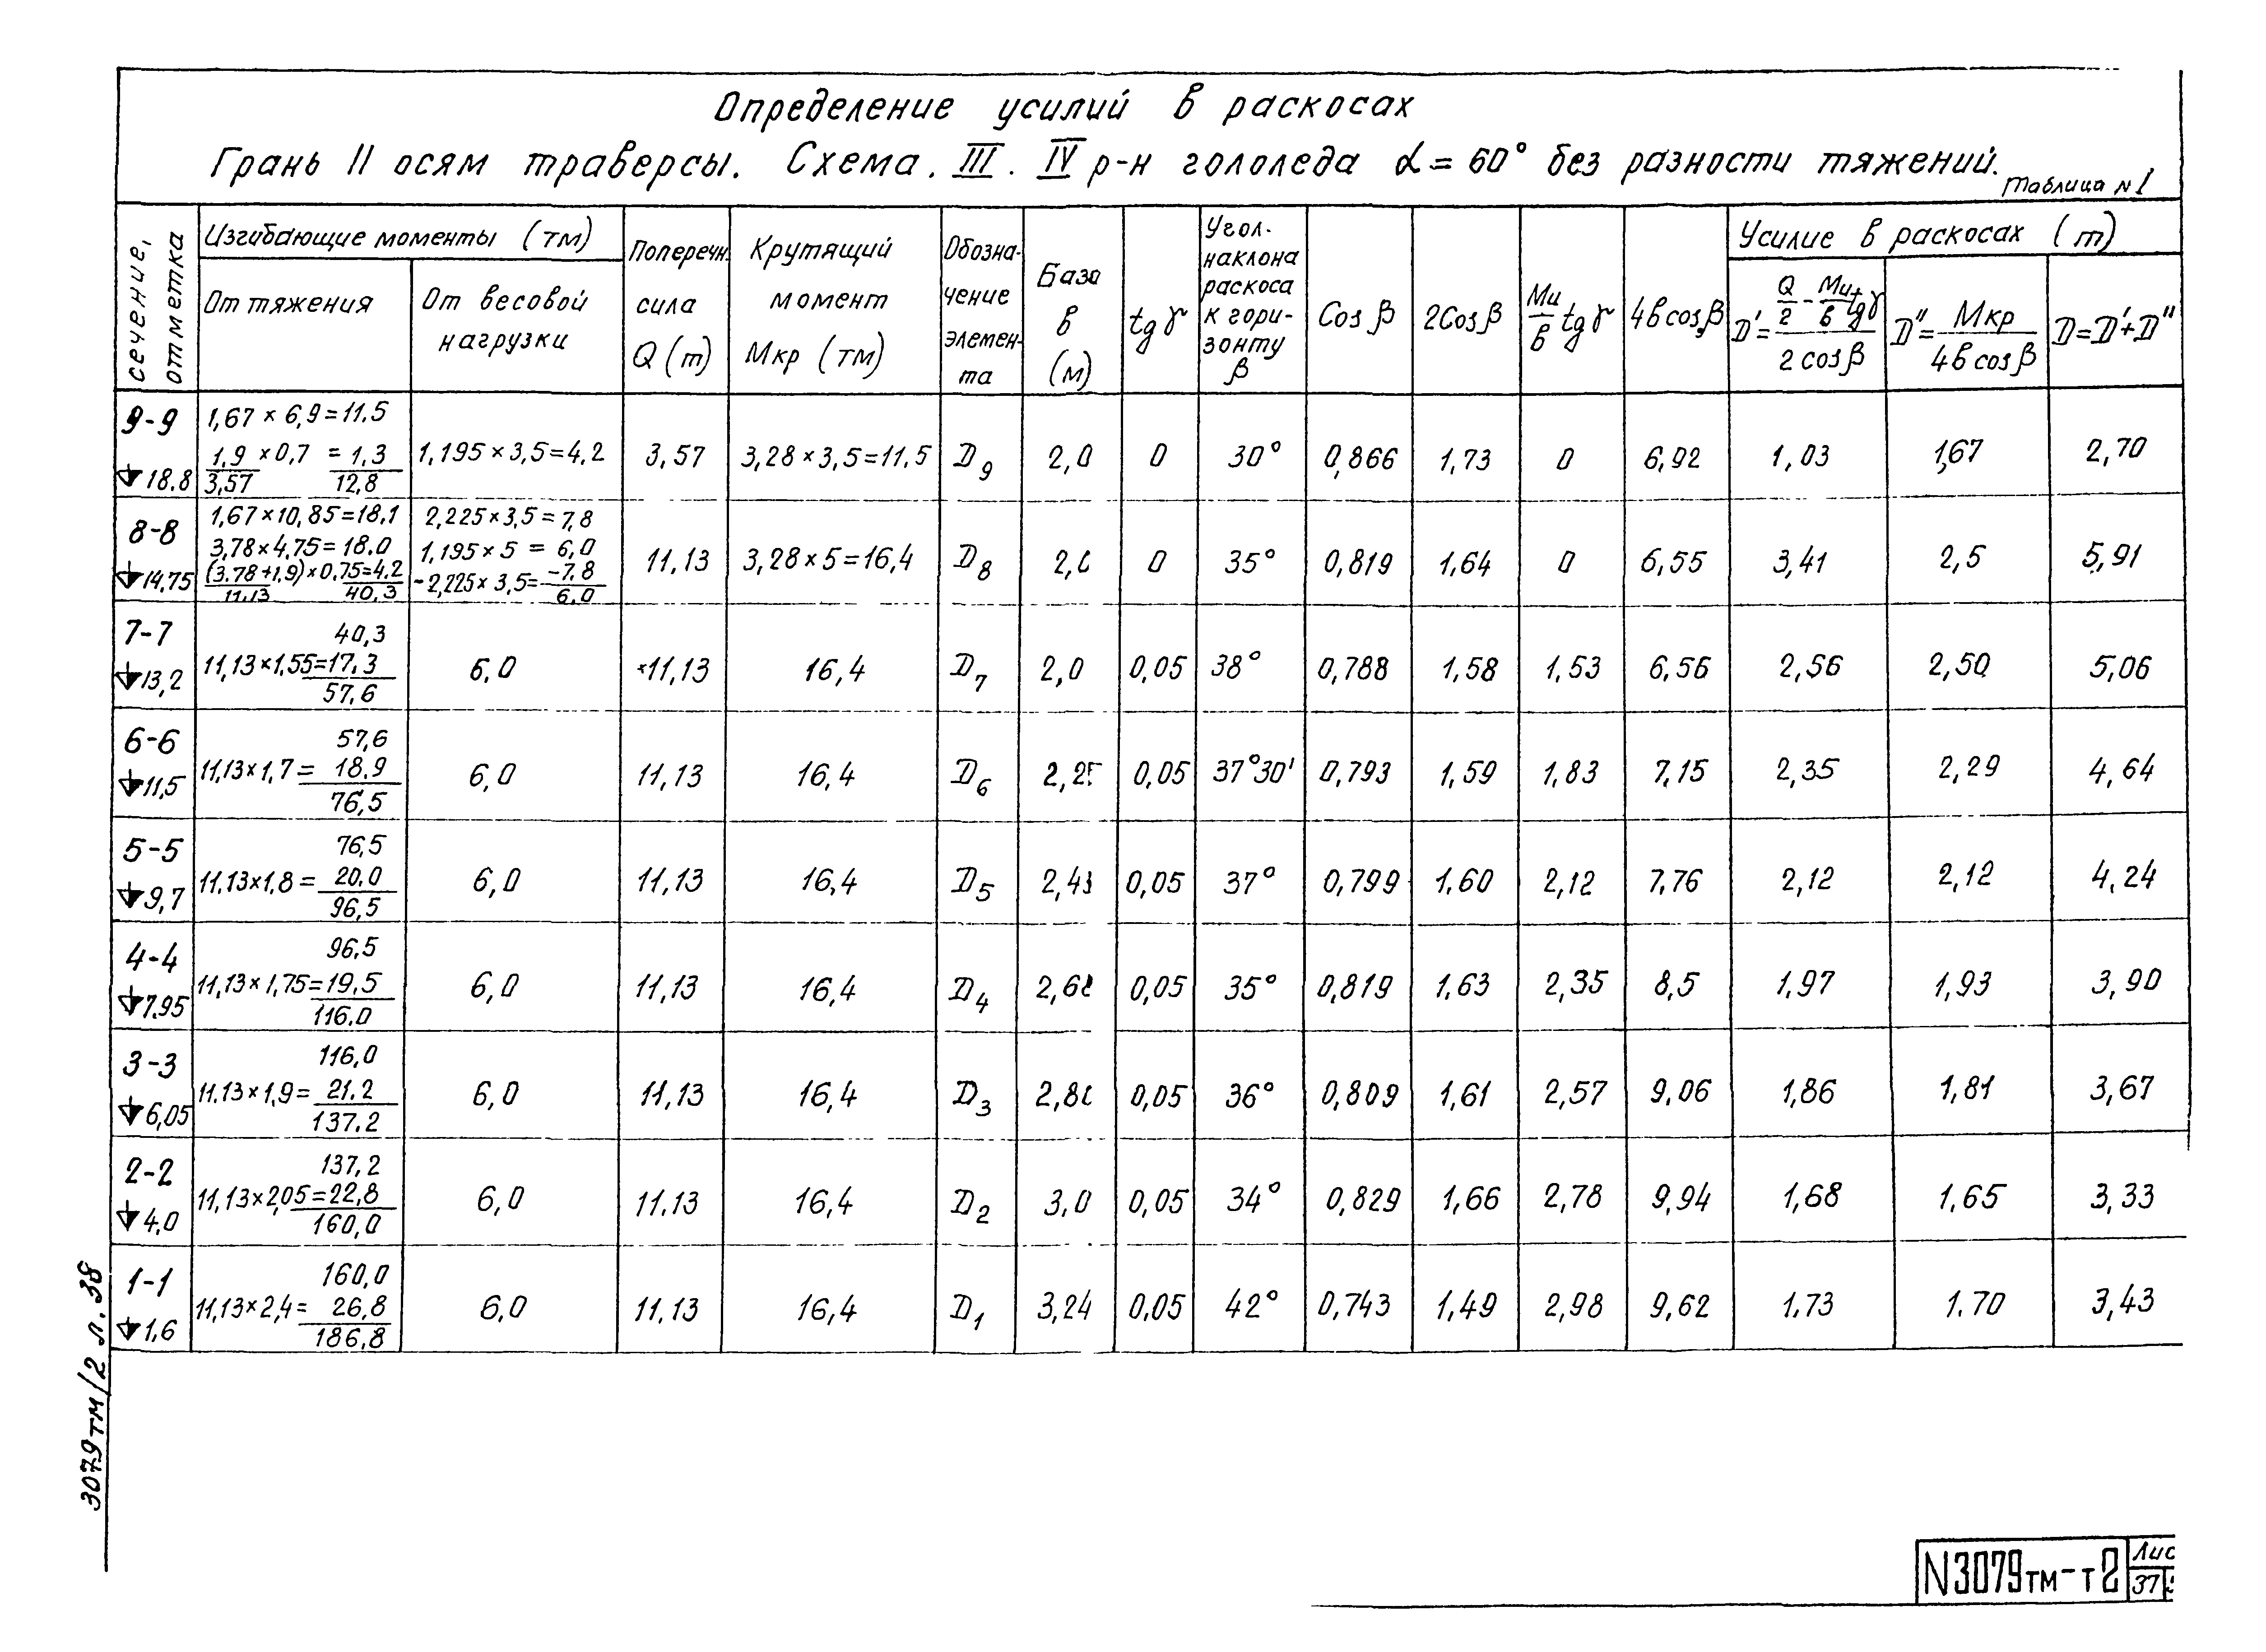 Определение усилий в раскосах
Грань II осям траверсы. Схема. III. IV р-н гололеда α = 60° без разности тяжений.
Таблица N 1
сечение, отметка
Изгибающие моменты (тм)
От тяжения
От весовой нагрузки
Поперечн. сила Q (т)
Крутящий момент Мкр (тм)
Обозначение элемента
База в (м)
tg γ
Угол наклона раскоса к горизонту β
Cos β
2Cos β
Ми/в tg γ
4в cos β
Усилие в раскосах (т)
D' = (Q/2 - Ми/в tg γ) / 2 cos β
D" = Мкр / 4в cos β
D = D' + D"
9-9 18.8
1,67 × 6,9 = 11.5
1,9 × 0,7 = 1,3
3,57 12,8
1,195 × 3,5 = 4,2
3,57 3,28 × 3,5 = 11,5 D9 2,0 0 30° 0,866 1,73 0 6,92 1,03 1,67 2,70
8-8 14,75
1,67 × 10,85 = 18,1
3,78 × 4,75 = 18.0
(3.78 + 1,9) × 0,75 = 4,2
11,13 40,3
2,225 × 3,5 = 7,8
1,195 × 5 = 6,0
-2,225 × 3,5 = -7,8
6,0
11,13 3,28 × 5 = 16,4 D8 0 35° 0,819 1,64 0 6,55 3,41 2,5 5,91
7-7 13,2
40,3
11,13 × 1,55 = 17,3
57,6
6,0 11,13 16,4 D7 2,0 0,05 38° 0,788 1,58 1,53 6,56 2,56 2,50 5,06
6-6 11,5
57,6
11,13 × 1,7 = 18.9
76,5
6,0 11,13 16,4 D6 0,05 37°30' 0,793 1,59 1,83 7,15 2,35 2,29 4,64
5-5 9,7
76,5
11,13 × 1,8 = 20,0
96,5
6,0 11,13 16,4 D5 2,43 0,05 37° 0,799 1,60 2,12 7,76 2,12 2,12 4,24
4-4 7.95
96,5
11,13 × 1,75 = 19,5
116,0
6,0 11,13 16,4 D4 0,05 35° 0,819 1,63 2,35 8,5 1,97 1,93 3,90
3-3 6,05
116,0
11.13 × 1,9 = 21.2
137.2
6,0 11,13 16,4 D3 0,05 36° 0,809 1,61 2,57 9,06 1,86 1,81 3,67
2-2 4,0
137,2
11,13 × 2,05 = 22,8
160,0
6,0 11.13 16,4 D2 3,0 0,05 34° 0,829 1,66 2,78 9,94 1,68 1,65 3,33
1-1 1,6
160,0
11,13 × 2,4 = 26,8
186,8
6,0 11.13 16,4 D1 3,24 0,05 42° 0,743 1,49 2,98 9,62 1.73 1.70 3,43
3079тм/2 л. 38
N3079тм-т2
Лис
37